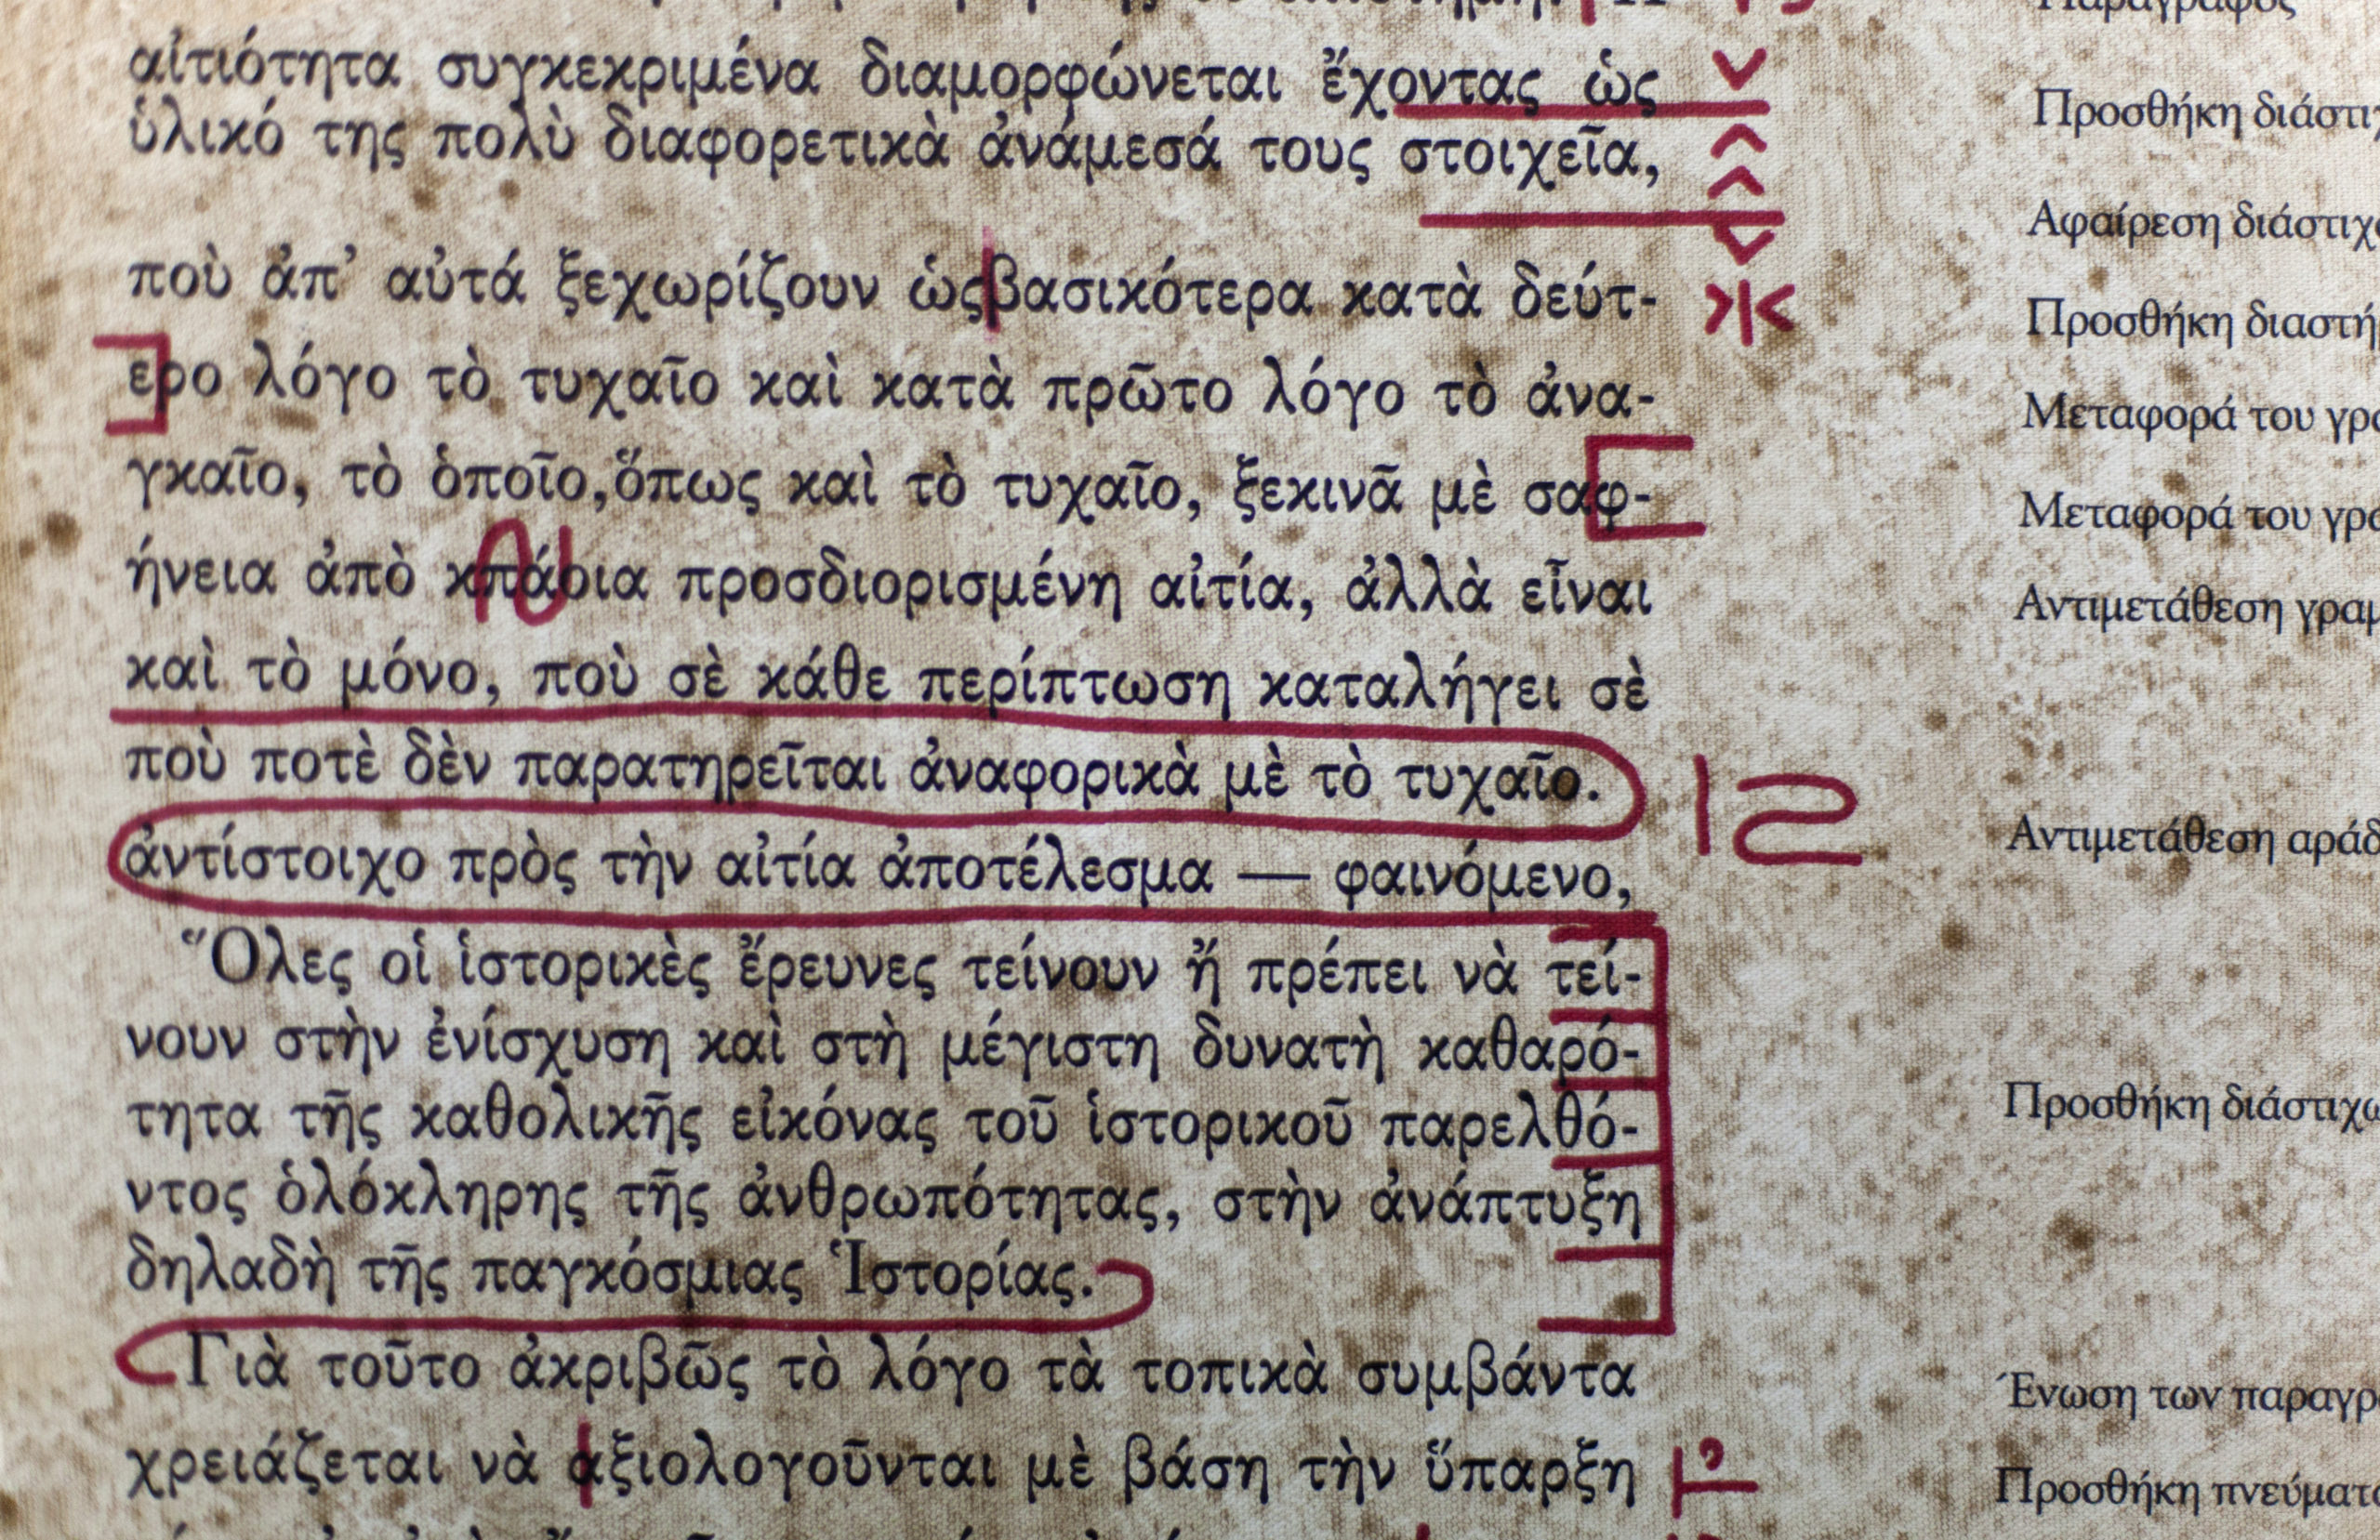 αἰτιότητα συγκεκριμένα διαμορφώνεται ἔχοντας ὡς
ὑλικό της πολὺ διαφορετικὰ ἀνάμεσά τους στοιχεῖα,
ποὺ ἀπ᾽ αὐτά ξεχωρίζουν ὡςβασικότερα κατὰ δεύτ-
ερο λόγο τὸ τυχαῖο καὶ κατὰ πρῶτο λόγο τὸ ἀνα-
γκαῖο, τὸ ὁποῖο,ὅπως καὶ τὸ τυχαῖο, ξεκινᾶ μὲ σαφ-
ήνεια ἀπὸ κπάοια προσδιορισμένη αἰτία, ἀλλὰ εἶναι
καὶ τὸ μόνο, ποὺ σὲ κάθε περίπτωση καταλήγει σὲ
ποὺ ποτὲ δὲν παρατηρεῖται ἀναφορικὰ μὲ τὸ τυχαῖο.
ἀντίστοιχο πρὸς τὴν αἰτία ἀποτέλεσμα — φαινόμενο,
Ὅλες οἱ ἱστορικὲς ἔρευνες τείνουν ἤ πρέπει νὰ τεί-
νουν στὴν ἐνίσχυση καὶ στὴ μέγιστη δυνατὴ καθαρό-
τητα τῆς καθολικῆς εἰκόνας τοῦ ἱστορικοῦ παρελθό-
ντος ὁλόκληρης τῆς ἀνθρωπότητας, στὴν ἀνάπτυξη
δηλαδὴ τῆς παγκόσμιας Ἱστορίας.
Γιὰ τοῦτο ἀκριβῶς τὸ λόγο τὰ τοπικὰ συμβάντα
χρειάζεται νὰ αξιολογοῦνται μὲ βάση τὴν ὕπαρξη
Παράγραφος
Προσθήκη
Αφαίρεση
Προσθήκη
Μεταφορά του
Μεταφορά του
Αντιμετάθεση
Αντιμετάθεση
Προσθήκη
Ένωση των
Προσθήκη